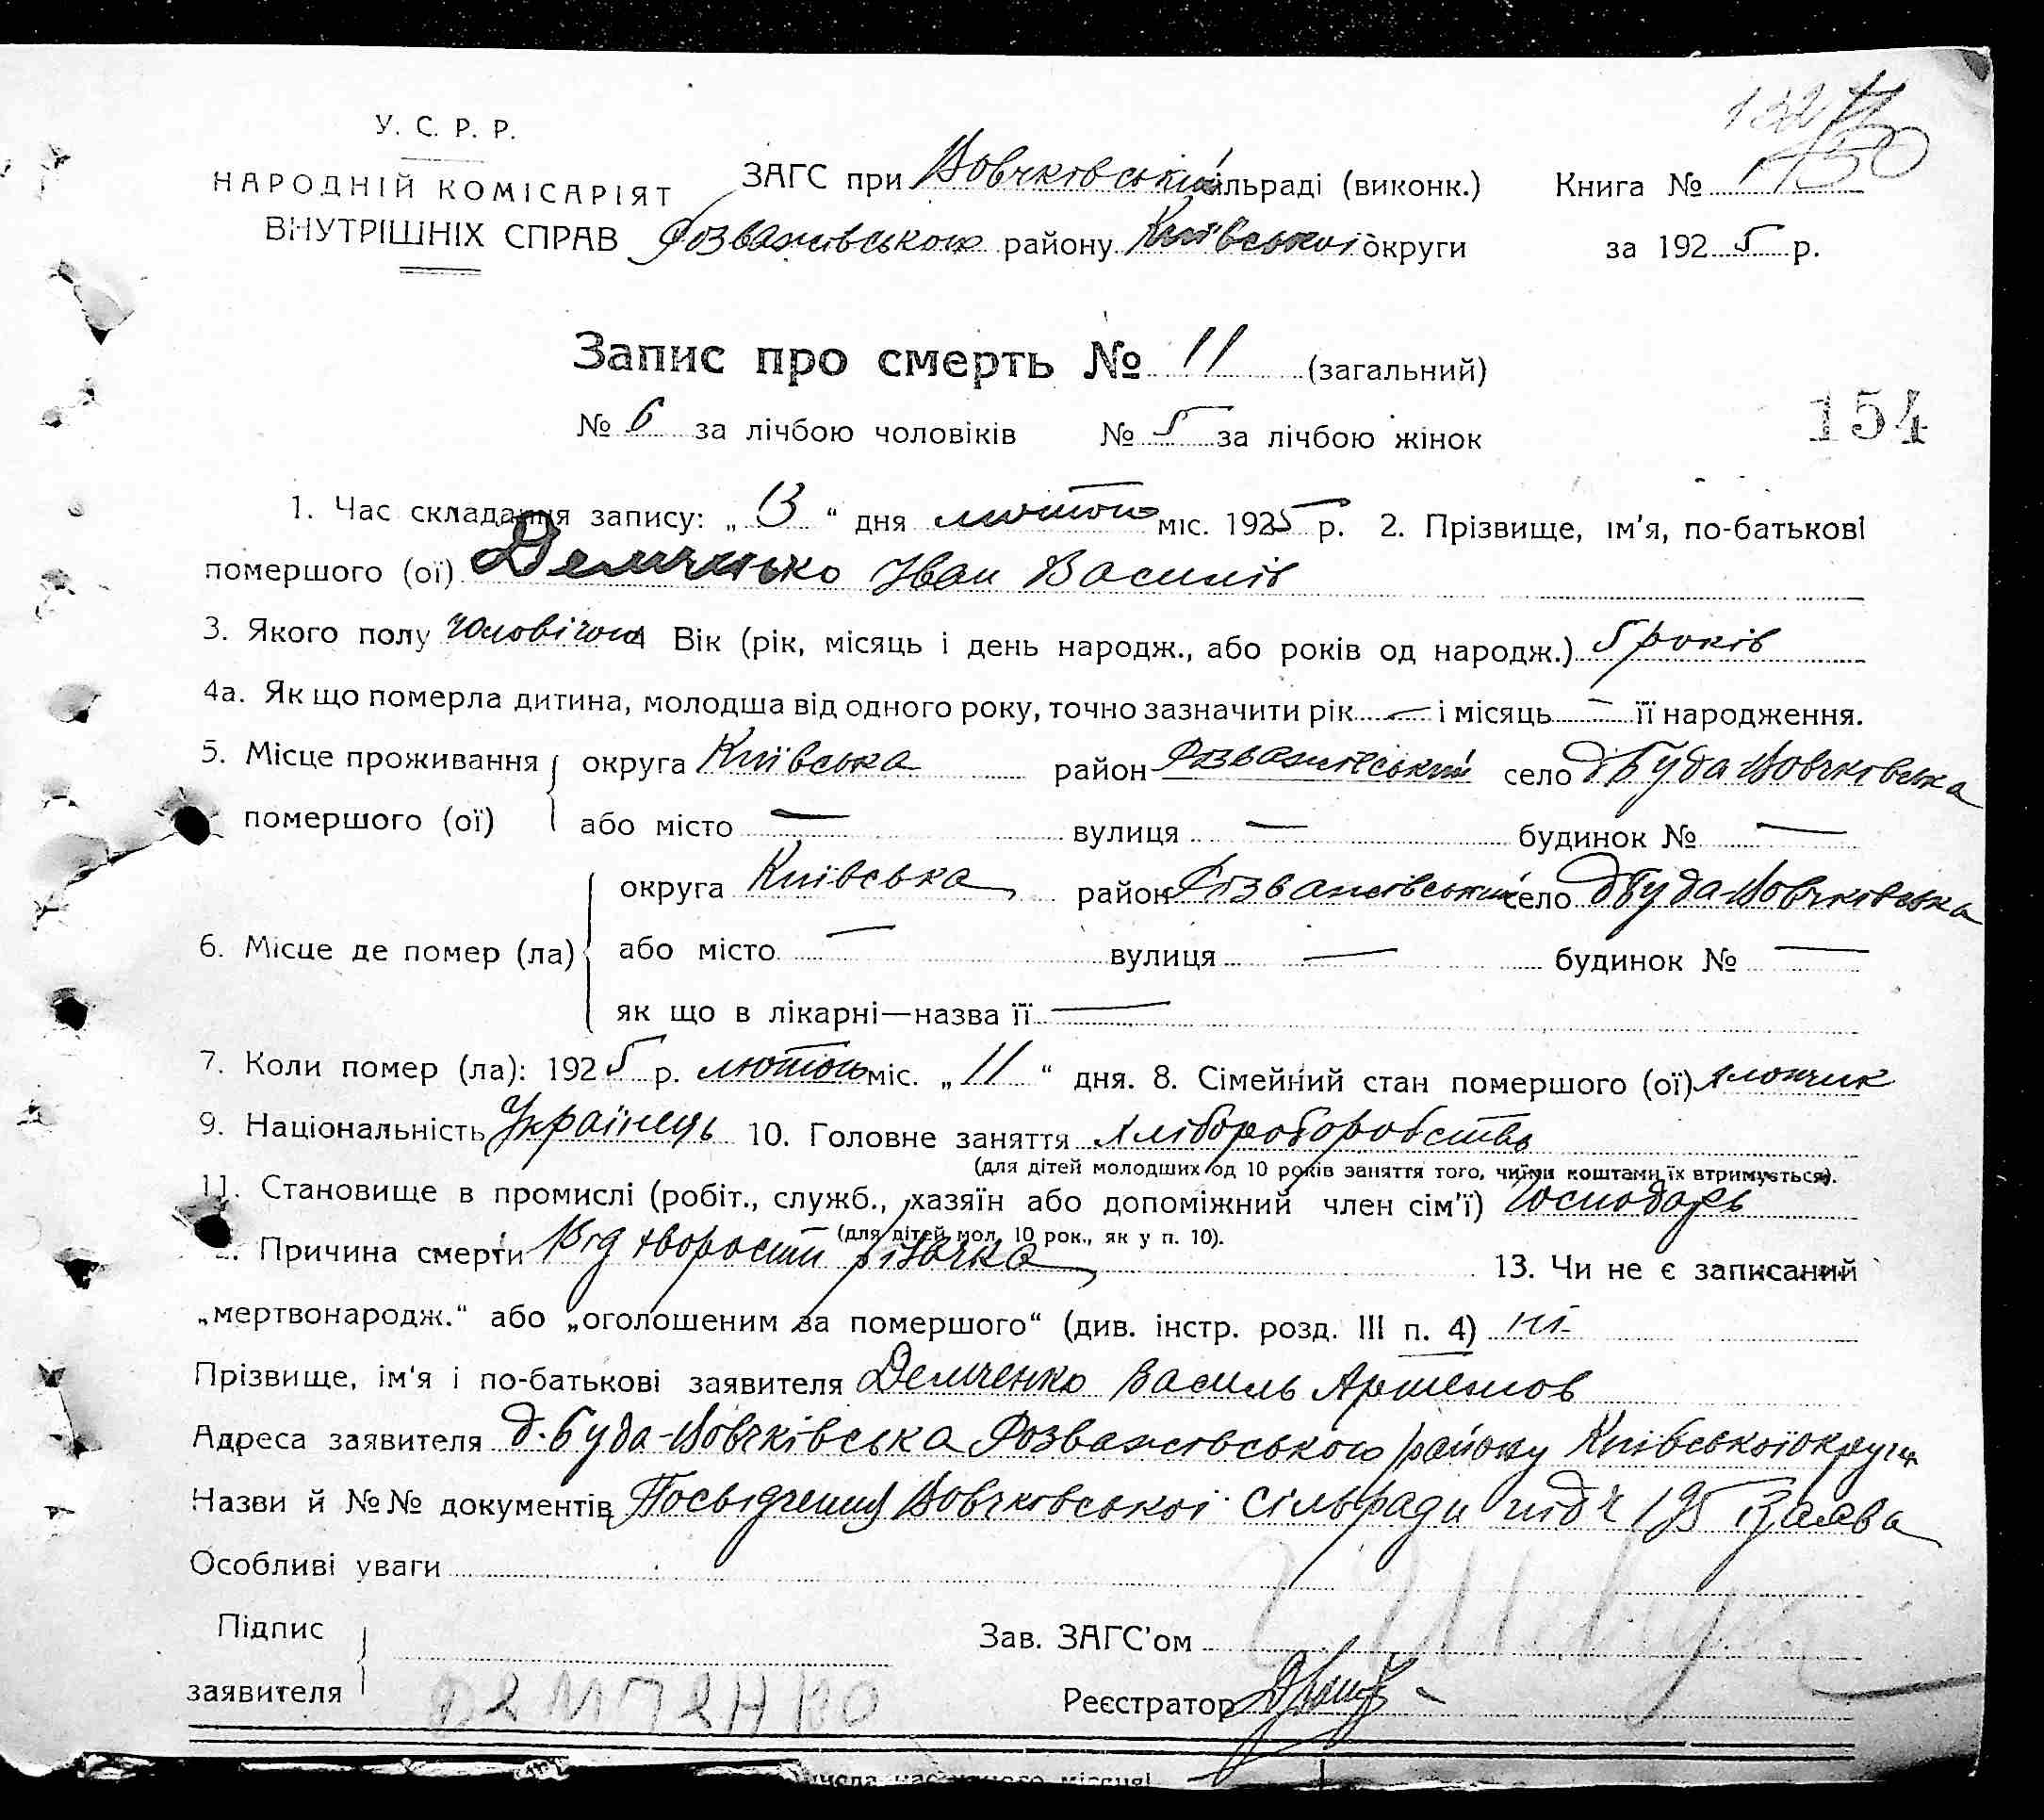 У. С. Р. Р.
НАРОДНІЙ КОМІСАРІЯТ
ВНУТРІШНІХ СПРАВ
ЗАГС при Вовчківській сільраді (виконк.)
Розважівського району Київської округи
Книга № 150
за 1925 р.
Запис про смерть № 11 (загальний)
№ 6 за лічбою чоловіків № 5 за лічбою жінок
154
1. Час складання запису: „13“ дня лютого міс. 1925 р. 2. Прізвище, ім'я, по-батькові
помершого (ої) Демченко Іван Василів
3. Якого полу чоловічого 4 Вік (рік, місяць і день народж., або років од народж.) 5 років
4а. Як що померла дитина, молодша від одного року, точно зазначити рік — і місяць — її народження.
5. Місце проживання округа Київська район Розважівський село д Буда Вовчківська
помершого (ої) або місто — вулиця — будинок № —
округа Київська район Розважівський село д Буда-Вовчківська
6. Місце де помер (ла) або місто — вулиця — будинок № —
як що в лікарні—назва її —
7. Коли помер (ла): 1925 р. лютого міс. „11“ дня. 8. Сімейний стан помершого (ої) хлопчик
9. Національність Українець 10. Головне заняття хлібороборобство
(для дітей молодших од 10 років заняття того, чиїми коштами їх втримується).
11. Становище в промислі (робіт., служб., хазяїн або допоміжний член сім'ї) Господарь
(для дітей мол. 10 рок., як у п. 10).
Причина смерти Від хворости різачка 13. Чи не є записаний
„мертвонародж.“ або „оголошеним за помершого“ (див. інстр. розд. III п. 4) ні
Прізвище, ім'я і по-батькові заявителя Демченко Василь Артемов
Адреса заявителя д. Буда-Вовчківська Розважівського району Київської округи
Назви й №№ документів Посвідчення Вовчківської сільради під ч 195 Заява
Особливі уваги
Підпис
заявителя
ДЕМЧЕНКО
Зав. ЗАГС'ом
Реєстратор